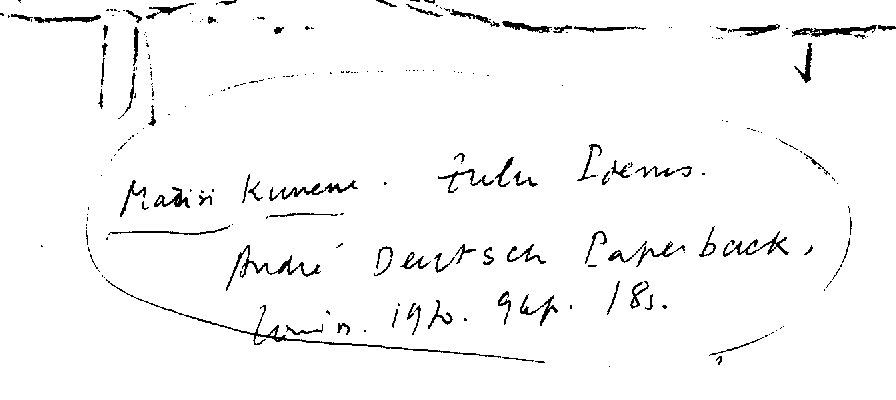 Mazisi Kunene. Zulu Poems.
André Deutsch Paperback,
London. 1970. 94p. 18s.